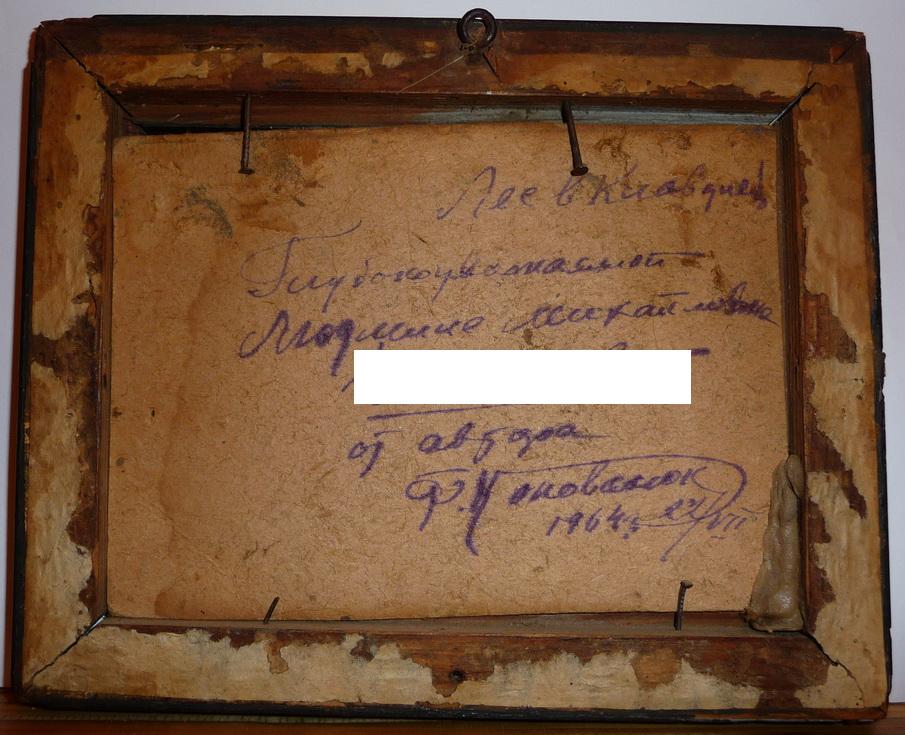 Лес в Китаеве
Глубокоуважаемой
Людмиле Михайловне
от автора
Ф. Коновалюк
1964 г. 27/VII